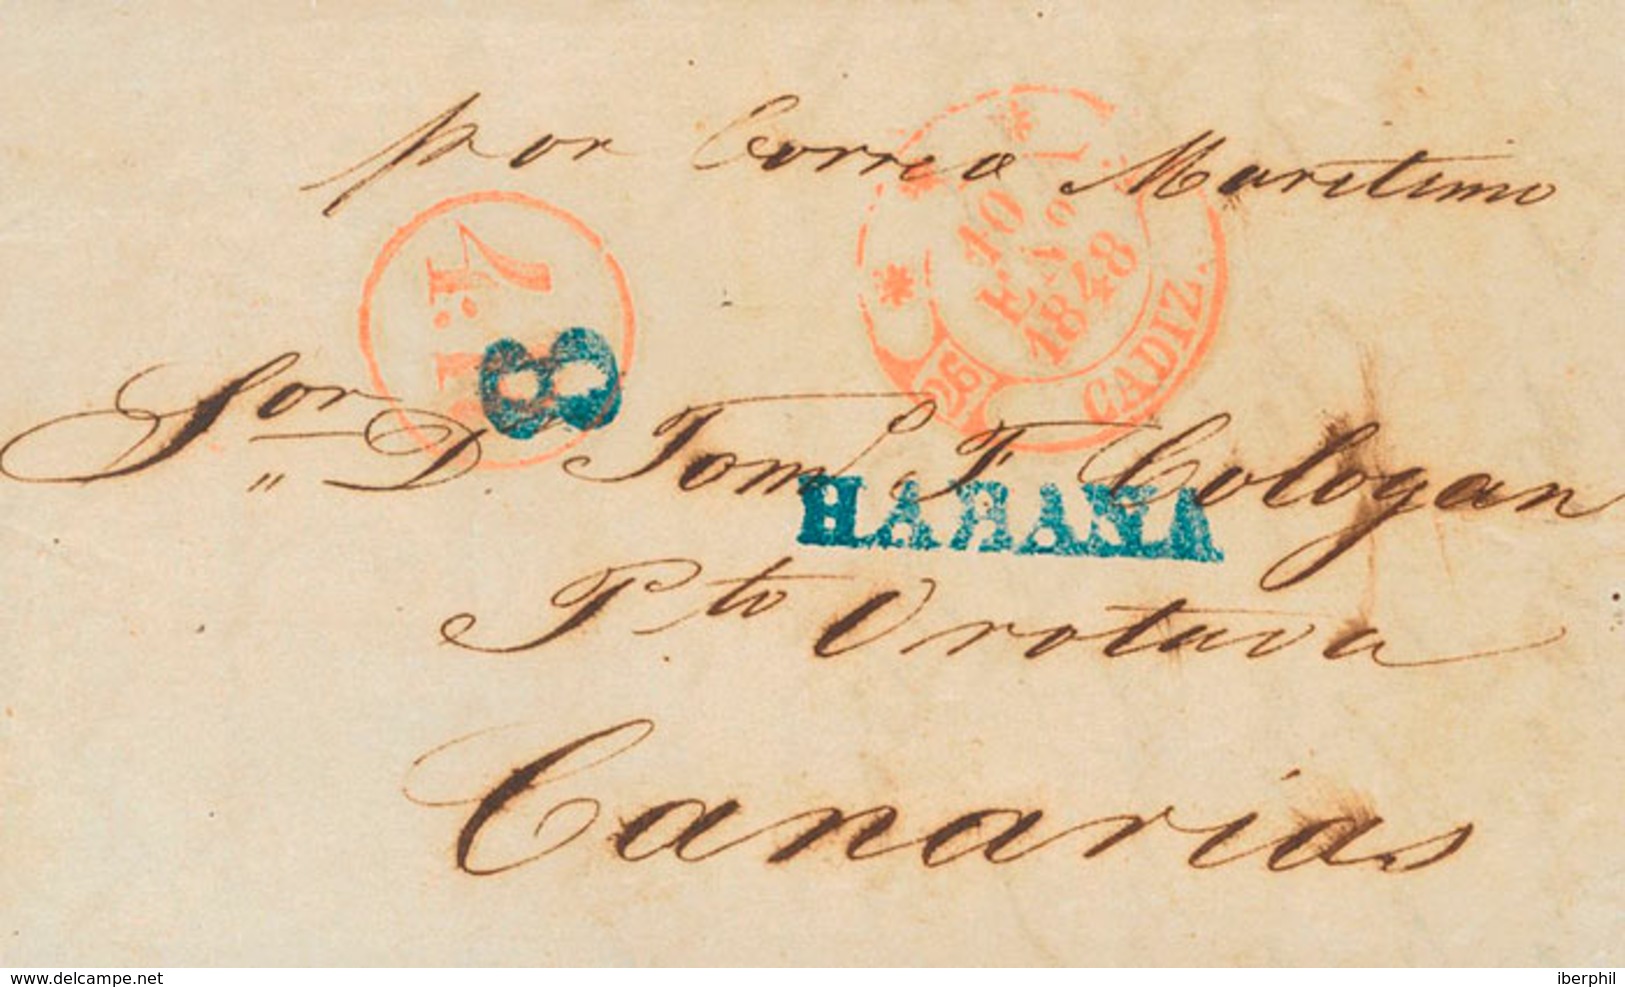 por Correo Maritimo
10
ENO
1848
CADIZ.
26
8
Sor. D. Tom.s F. Cologan
HABANA
Pto Orotava
Canarias
www.delcampe.net
iberphil